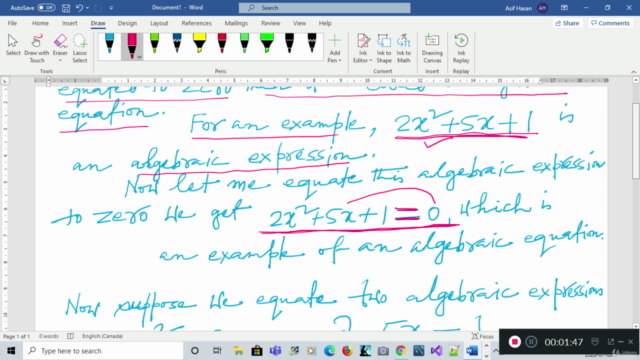 AutoSave Off Document1 - Word Search Asif Hasan AH
File Home Insert Draw Design Layout References Mailings Review View Help Share Comments
Select Draw with Touch Eraser Lasso Select Add Pen Ink Editor Ink to Shape Ink to Math Ink Replay
Tools Pens Convert Replay
equated to zero
equation. For an example, 2x²+5x+1 is
an algebraic expression.
Now let me equate this algebraic expression
to zero we get 2x²+5x+1 = 0, which is
an example of an algebraic equation.
Now suppose we equate two algebraic expression
Page 1 of 1 0 words English (Canada)
Type here to search
1:01:47